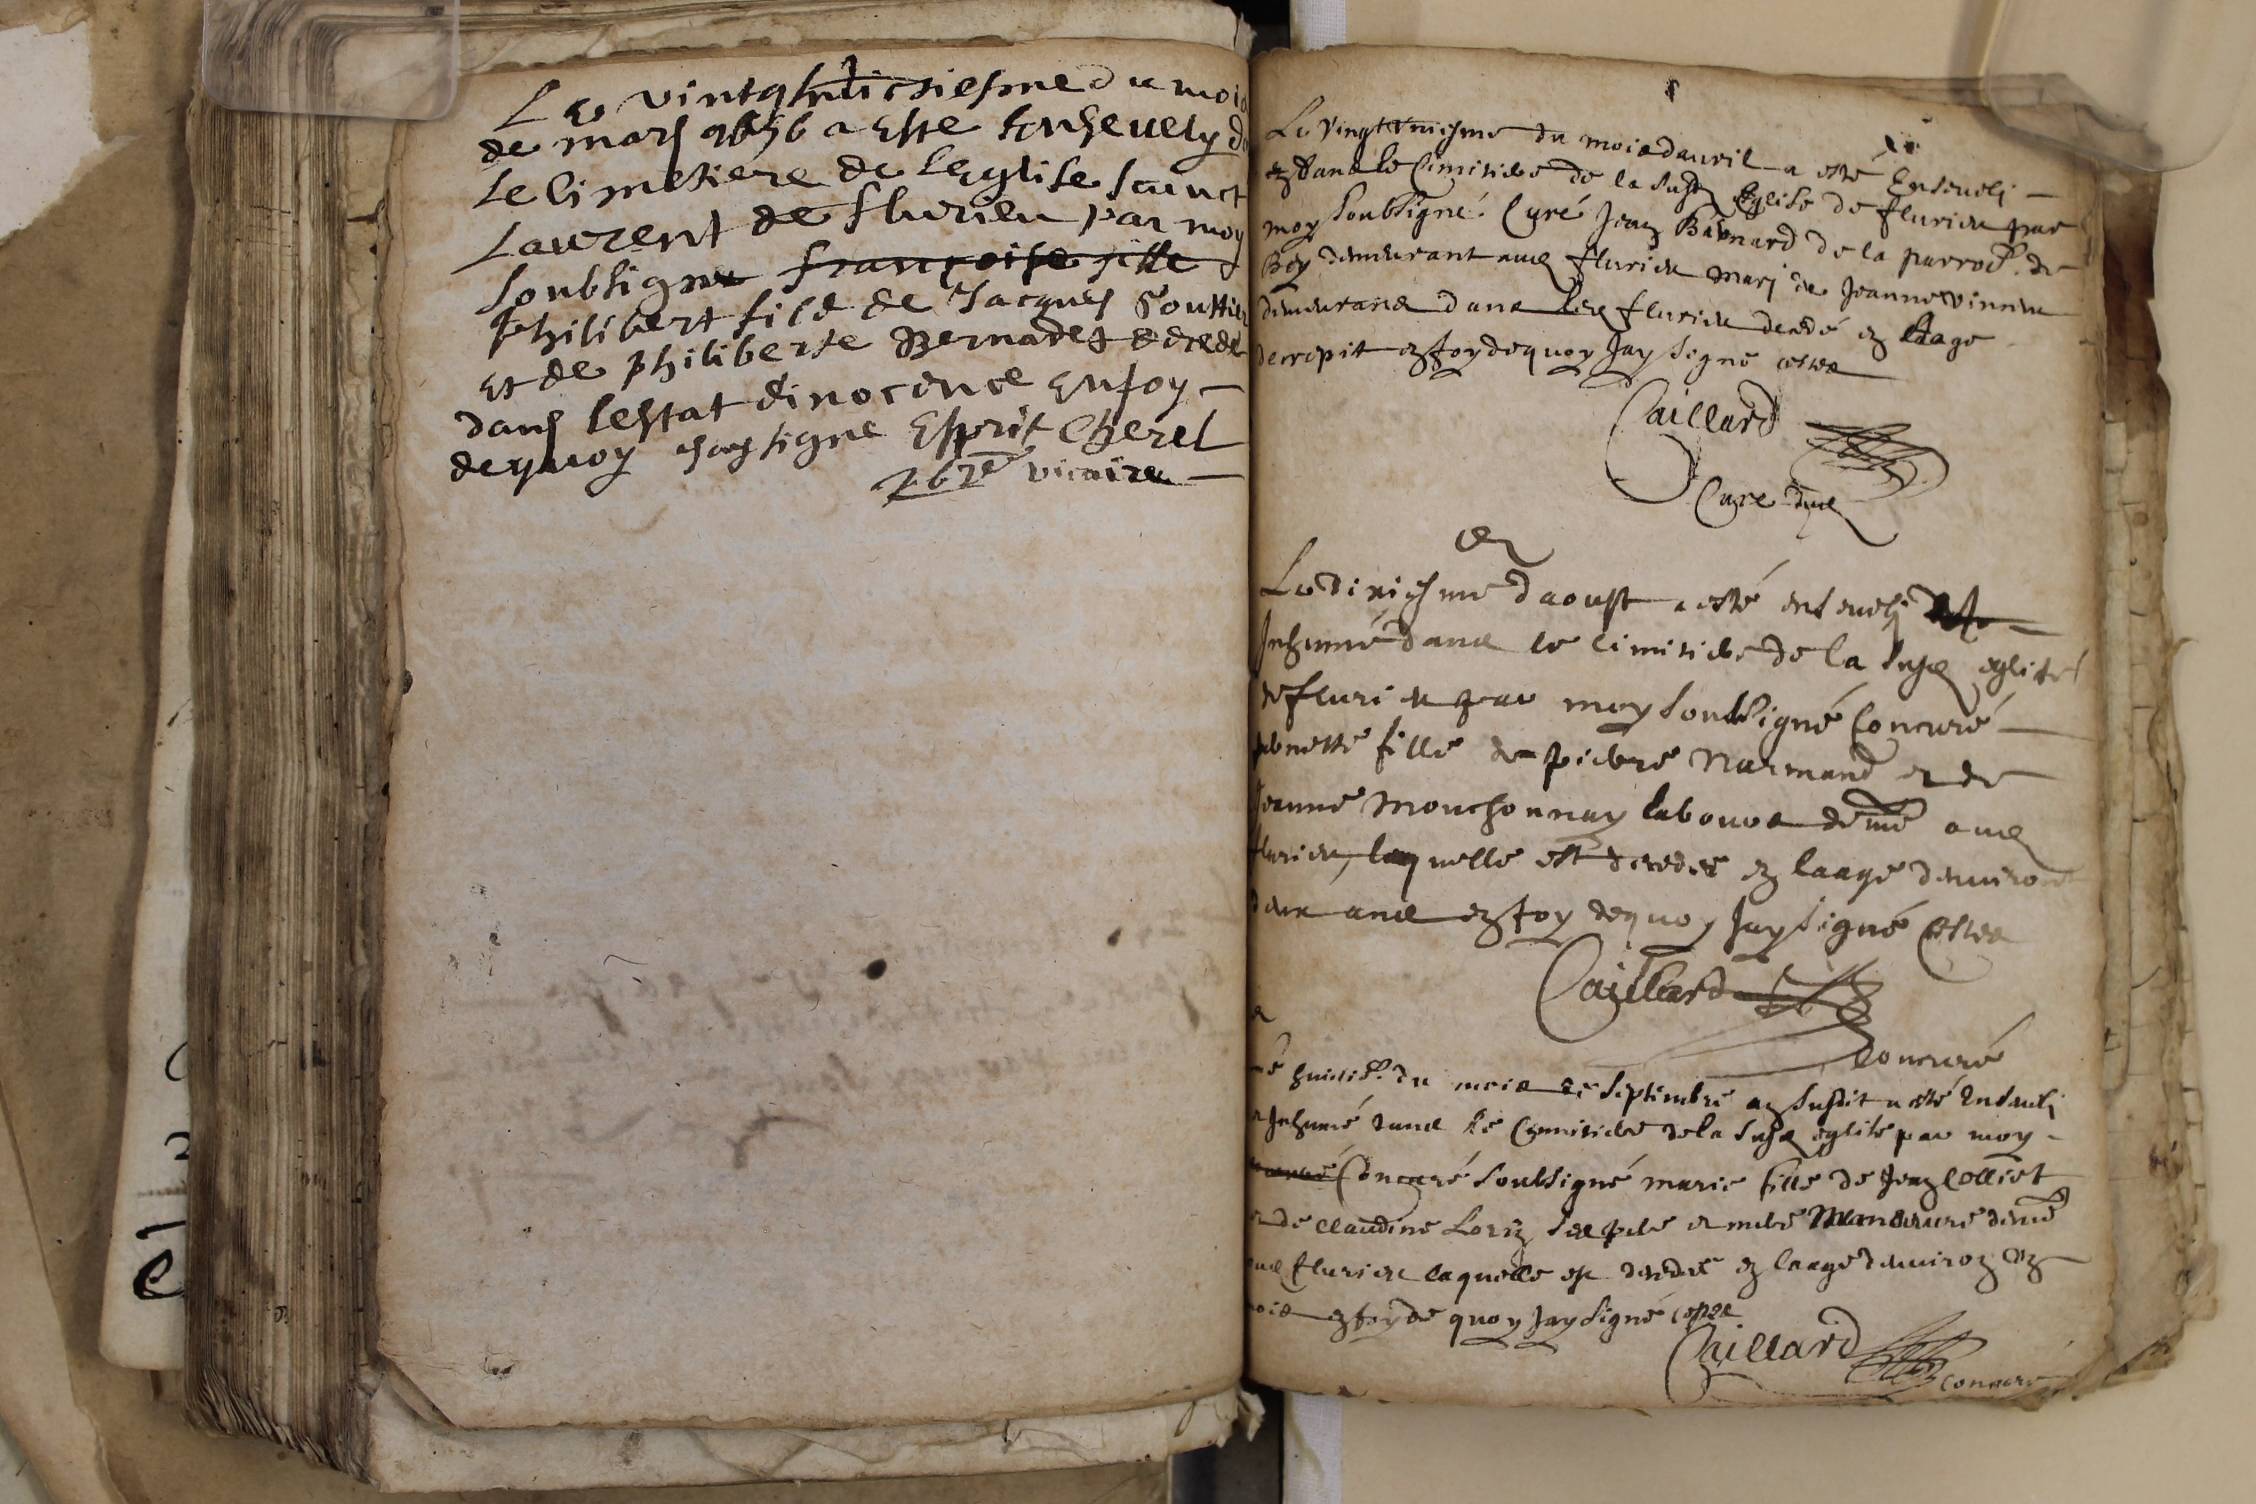 Le vintqhuictiesme du mois
de mars 1656 a este Ensevely d
le Cimetiere de leglise sainct
Laurent de flurieu par moy
soubsigne francoise fille
philibert fils de Jacques
et de philiberte Bernadet decede
dans lestat dinocence Enfoy
dequoy Jay signe Esprit Cherel
vicaire
Le du mois davril a esté Enseveli
dans le Cimitiere de la susd Eglise de flurieu par
moy soubsigné Curé Jean Barnard de la parrod. de
demeurant aud flurieu mary de Jeanne
demeurans dans led flurieu decedé en laage
decrepit en foy dequoy Jay signé cestes
Caillard
Curé dud
Le diziesme daoust a esté enseveli
Inhumé dans le cimitiere de la susd eglise
de flurieu par moy soubsigné Concuré
fille de pierre Narmand et de
Jeanne Mouchonnay labours demt aud
flurieu, laquelle est decedee en laage denviron
deux ans en foy dequoy Jay signé Cestes
Caillard
Concuré
Le huictie. du mois de septembre an susdit a esté Enseveli
et Inhumé dans le Cimitiere de la susd eglise par moy
Concuré soubsigné marie fille de Jean Colliet
et de Claudine Loriz ses pere et mere demt
aud flurieu laquelle est decedee en laage denviron un
mois en foy de quoy Jay signé cestes
Caillard
Concuré